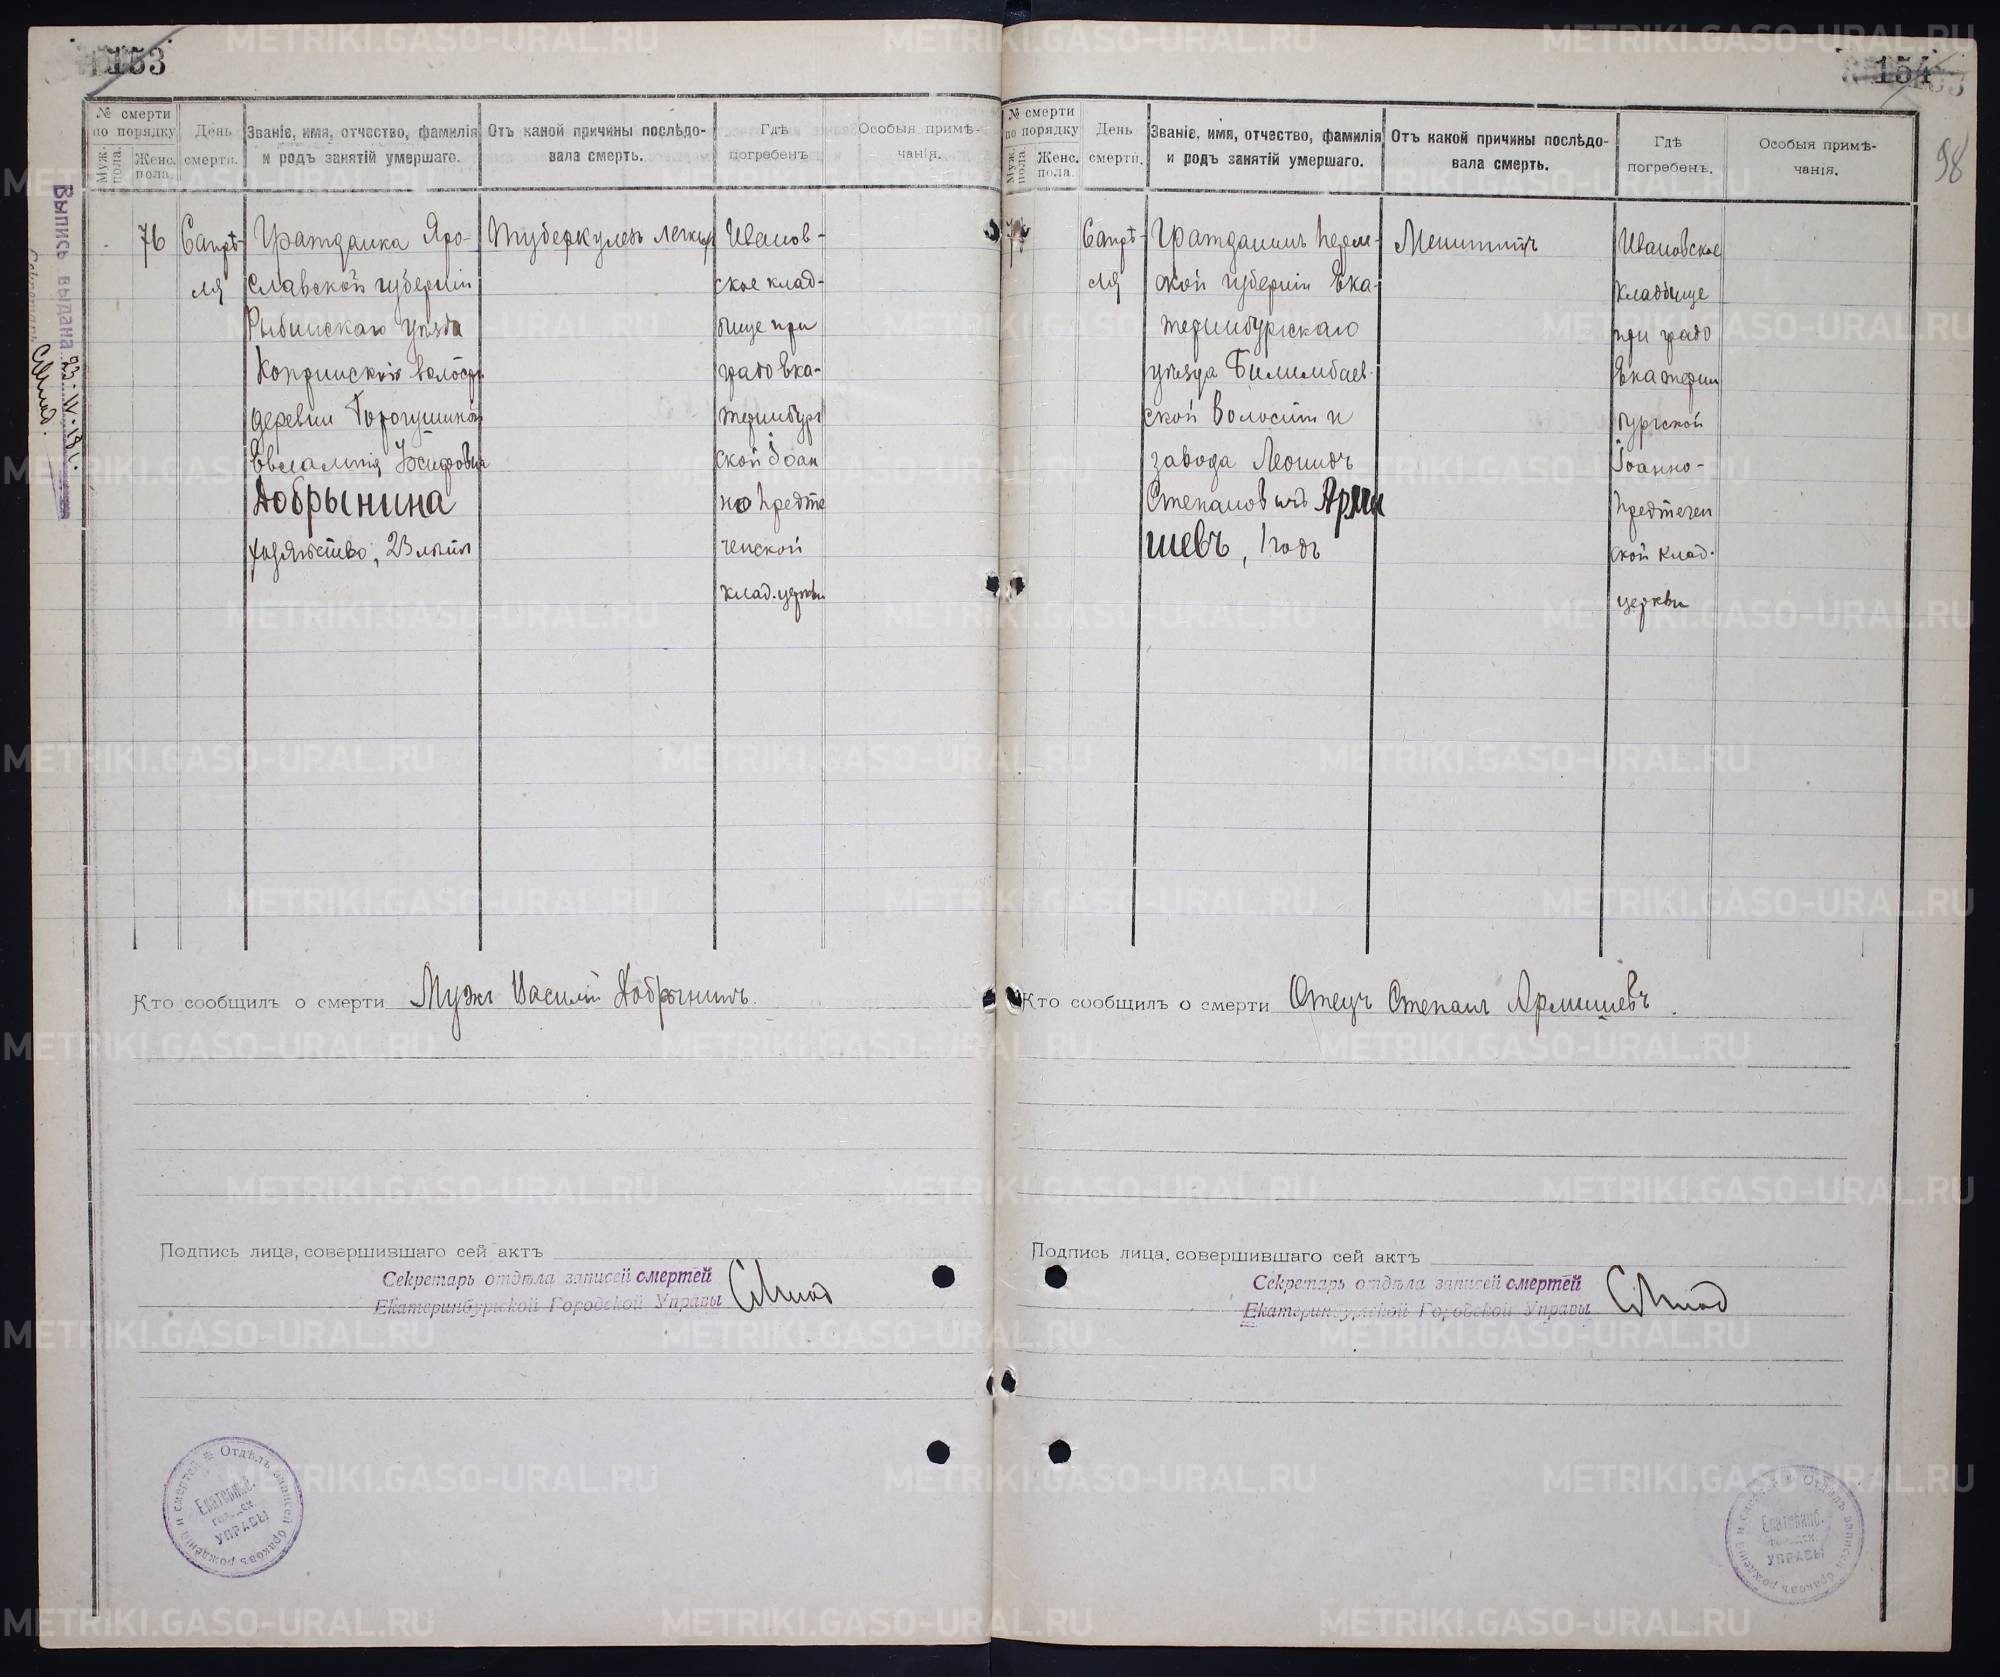 153
№ смерти по порядку
Муж. пола.
Женс. пола.
День смерти.
Званіе, имя, отчество, фамилія и родъ занятій умершаго.
Отъ какой причины послѣдовала смерть.
Гдѣ погребенъ
Особыя примѣчанія.
76
6 апрѣ-
ля
Гражданка Яро-
славской губерніи
Рыбинскаго уѣзда
Копринской волости
деревни
Евлампія
Добрынина
хозяйство, 23 лѣтъ
Туберкулезъ легкихъ
Иванов-
ское клад-
бище при
градо Ека-
теринбург
ской Іоан
но Предте
ченской
клад. церкви
Выпись выдана 23-IV-18 г.
Кто сообщилъ о смерти Мужъ Василій Добрынинъ.
Подпись лица, совершившаго сей актъ
Секретарь отдѣла записей смертей
Екатеринбургской Городской Управы
Отдѣлъ записей браковъ рожденій и смертей
Екатеринб.
городск.
УПРАВЫ
154
98
№ смерти по порядку
Муж. пола.
Женс. пола.
День смерти.
Званіе, имя, отчество, фамилія и родъ занятій умершаго.
Отъ какой причины послѣдовала смерть.
Гдѣ погребенъ.
Особыя примѣчанія.
6 апрѣ-
ля
Гражданинъ Перм-
ской губерніи Ека-
теринбургскаго
уѣзда Билимбаев-
ской волости и
завода Леонидъ
Степановичъ Арми
шевъ, 1 годъ
Менингитъ
Ивановское
кладбище
при градо
Екатерин
бургской
Іоанно-
Предтечен
ской клад.
церкви
Кто сообщилъ о смерти Отецъ Степанъ Армишевъ.
Подпись лица, совершившаго сей актъ
Секретарь отдѣла записей смертей
Екатеринбургской Городской Управы
Отдѣлъ записей браковъ рожденій и смертей
Екатеринб.
городск.
УПРАВЫ
METRIKI.GASO-URAL.RU